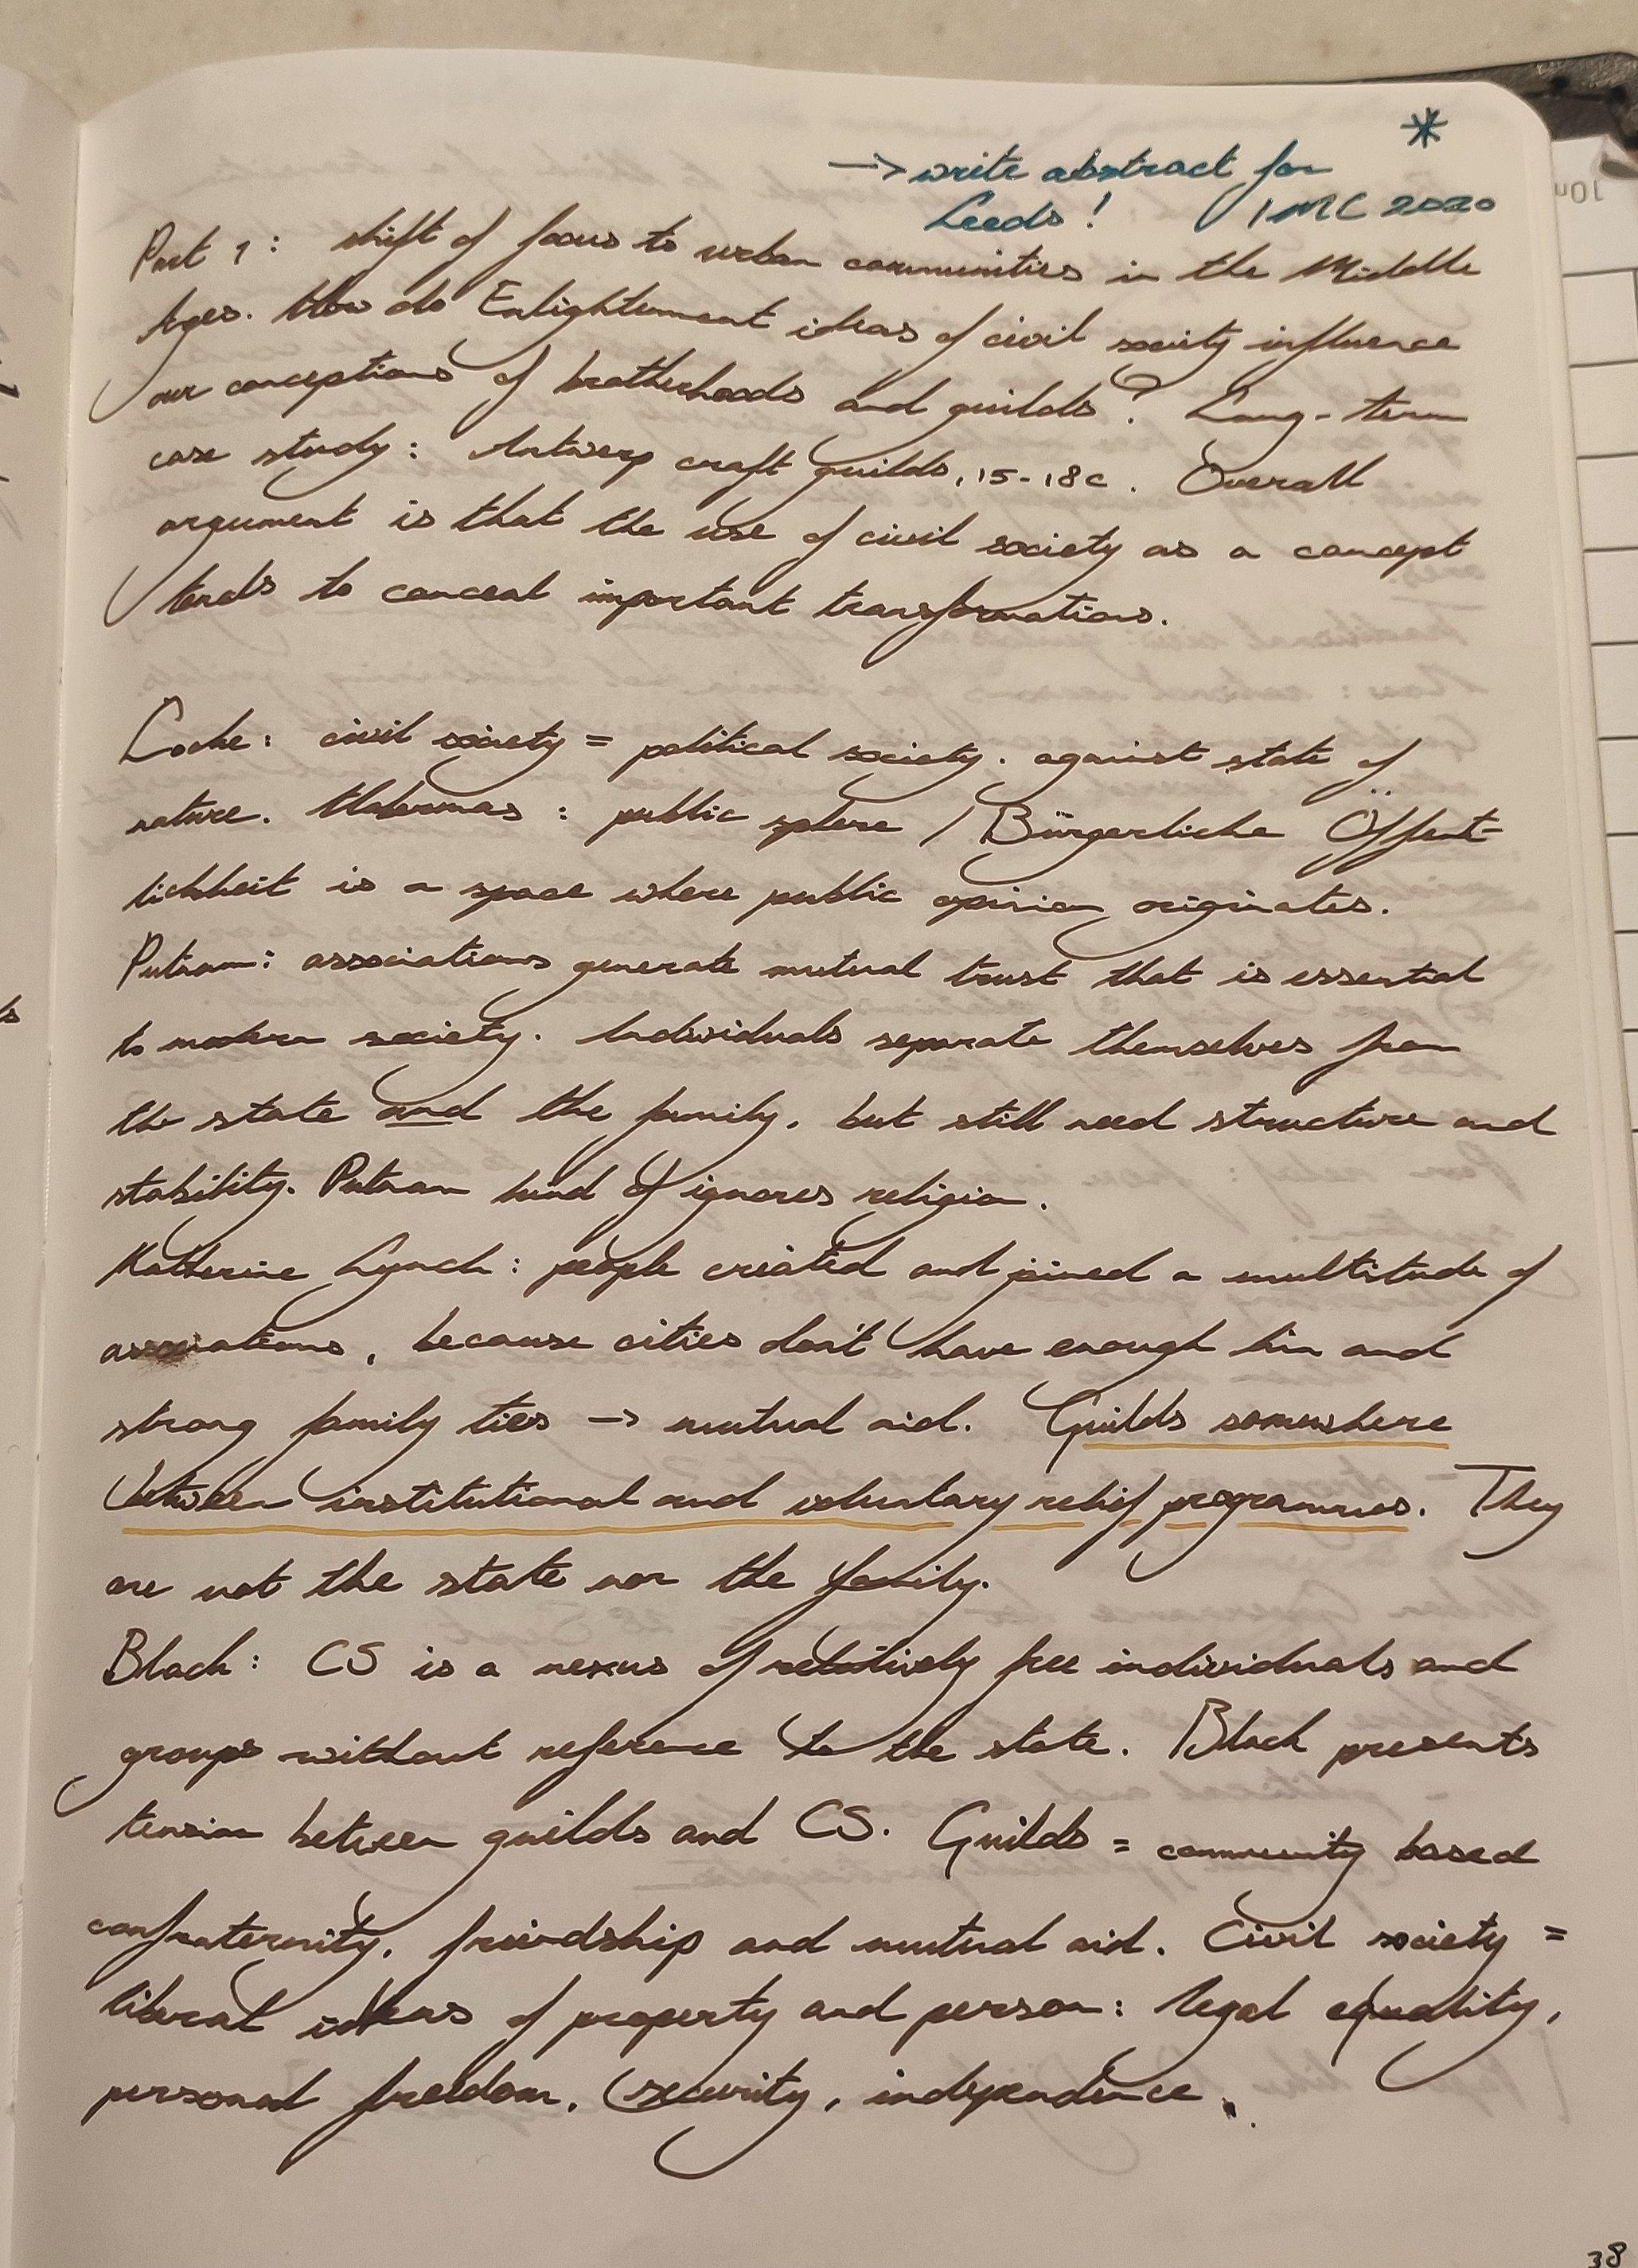 *
→ write abstract for
Leeds! IMC 2020
Part 1: shift of focus to urban communities in the Middle
Ages. How do Enlightenment ideas of civil society influence
our conceptions of brotherhoods and guilds? Long-term
case study: Antwerp craft guilds, 15-18c. Overall
argument is that the use of civil society as a concept
tends to conceal important transformations.
Locke: civil society = political society. against state of
nature. Habermas: public sphere / Bürgerliche Öffent-
lichkeit is a space where public opinion originates.
Putnam: associations generate mutual trust that is essential
to modern society. Individuals separate themselves from
the state and the family, but still need structure and
stability. Putnam kind of ignores religion.
Katherine Lynch: people created and joined a multitude of
associations, because cities don't have enough kin and
strong family ties → mutual aid. Guilds somewhere
between institutional and voluntary relief programmes. They
are not the state nor the family.
Black: CS is a nexus of relatively free individuals and
groups without reference to the state. Black presents
tension between guilds and CS. Guilds = community based
confraternity, friendship and mutual aid. Civil society =
liberal ideas of property and person: legal equality,
personal freedom, security, independence.
38